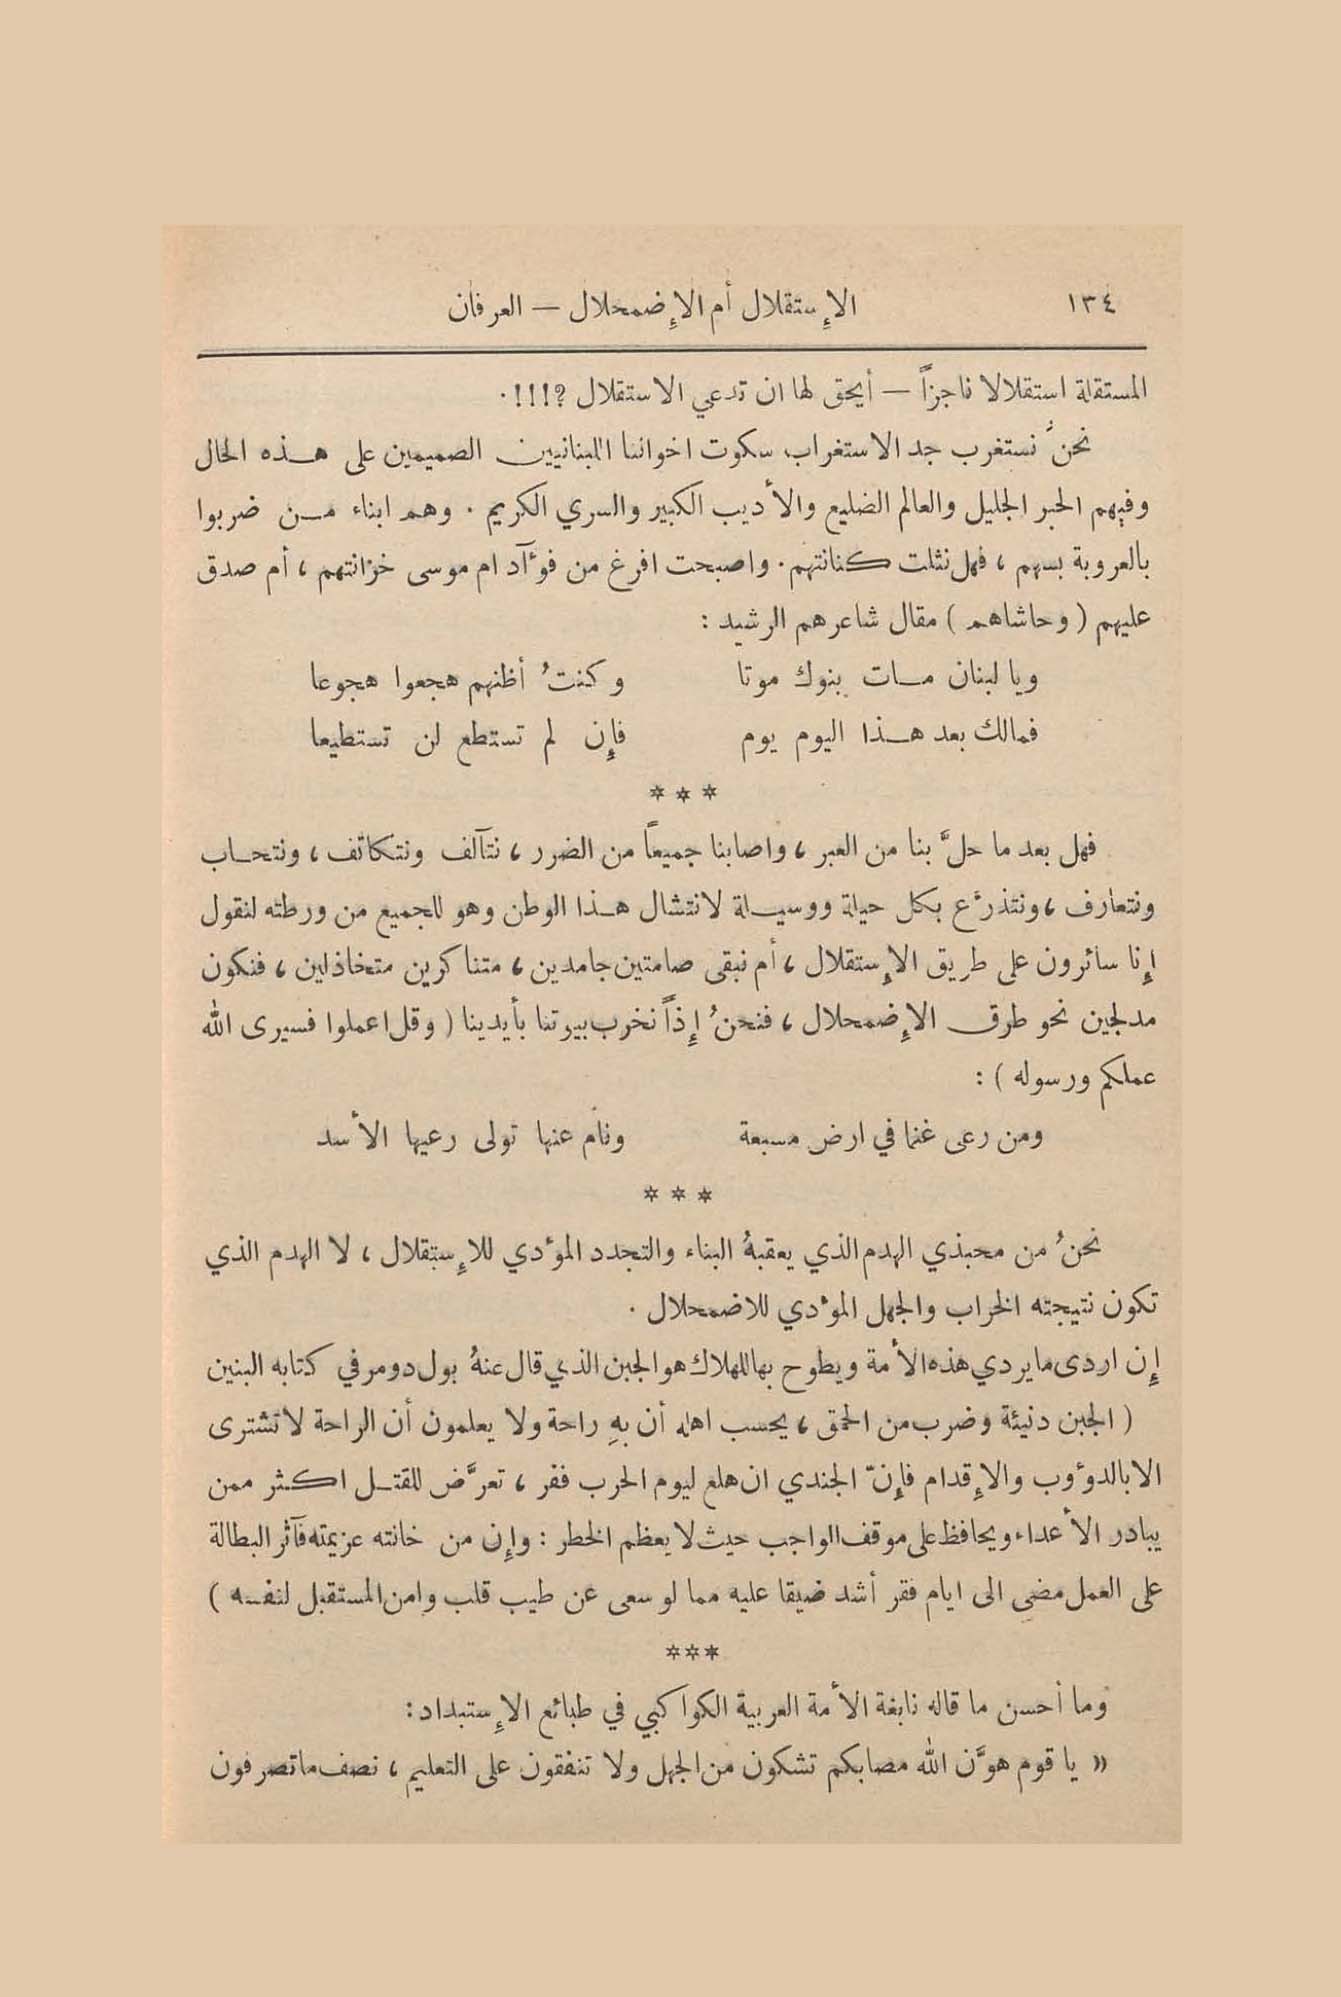 ١٣٤ الإستقلال أم الإضمحلال — العرفان
المستقلة استقلالا ناجزاً — أيحق لها ان تدعي الاستقلال ؟!!! .
نحن نستغرب جد الاستغراب سكوت اخواننا اللبنانيين الصميمين على هذه الحال
وفيهم الحبر الجليل والعالم الضليع والأديب الكبير والسري الكريم . وهم ابناء من ضربوا
بالعروبة بسهم ، فهل نثلت كنانتهم . واصبحت افرغ من فؤآد ام موسى خزانتهم ، أم صدق
عليهم ( وحاشاهم ) مقال شاعرهم الرشيد :
ويا لبنان مات بنوك موتا وكنتُ أظنهم هجعوا هجوعا
فمالك بعد هذا اليوم يوم فإن لم تستطع لن تستطيعا
* * *
فهل بعد ما حلَّ بنا من العبر ، واصابنا جميعاً من الضرر ، نتآلف ونتكاتف ، ونتحاب
ونتعارف ، ونتذرع بكل حيلة ووسيلة لانتشال هذا الوطن وهو للجميع من ورطته لنقول
إنا سائرون على طريق الإستقلال ، أم نبقى صامتين جامدين ، متناكرين متخاذلين ، فنكون
مدلجين نحو طرق الإضمحلال ، فنحنُ إذاً نخرب بيوتنا بأيدينا ( وقل اعملوا فسيرى الله
عملكم ورسوله ) :
ومن رعى غنما في ارض مسبعة ونام عنها تولى رعيها الأسد
* * *
نحنُ من محبذي الهدم الذي يعقبهُ البناء والتجدد المؤدي للإستقلال ، لا الهدم الذي
تكون نتيجته الخراب والجهل المؤدي للاضمحلال .
إن اردى ما يردي هذه الأمة ويطوح بها للهلاك هو الجبن الذي قال عنهُ بول دومر في كتابه البنين
( الجبن دنيئة وضرب من الحمق ، يحسب اهله أن بهِ راحة ولا يعلمون أن الراحة لا تشترى
الا بالدؤوب والإقدام فإنّ الجندي ان هلع ليوم الحرب ففر ، تعرَّض للقتل اكثر ممن
يبادر الأعداء ويحافظ على موقف الواجب حيث لا يعظم الخطر : وإن من خانته عزيمته فآثر البطالة
على العمل مضى الى ايام فقر أشد ضيقا عليه مما لو سعى عن طيب قلب وامن المستقبل لنفسه )
***
وما أحسن ما قاله نابغة الأمة العربية الكواكبي في طبائع الإستبداد :
« يا قوم هوَّن الله مصابكم تشكون من الجهل ولا تنفقون على التعليم ، نصف ما تصرفون